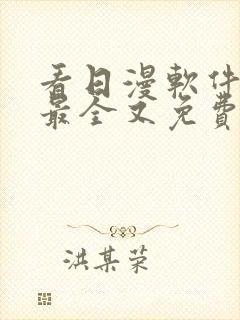 看日漫軟件
最全又免費
洪某荣